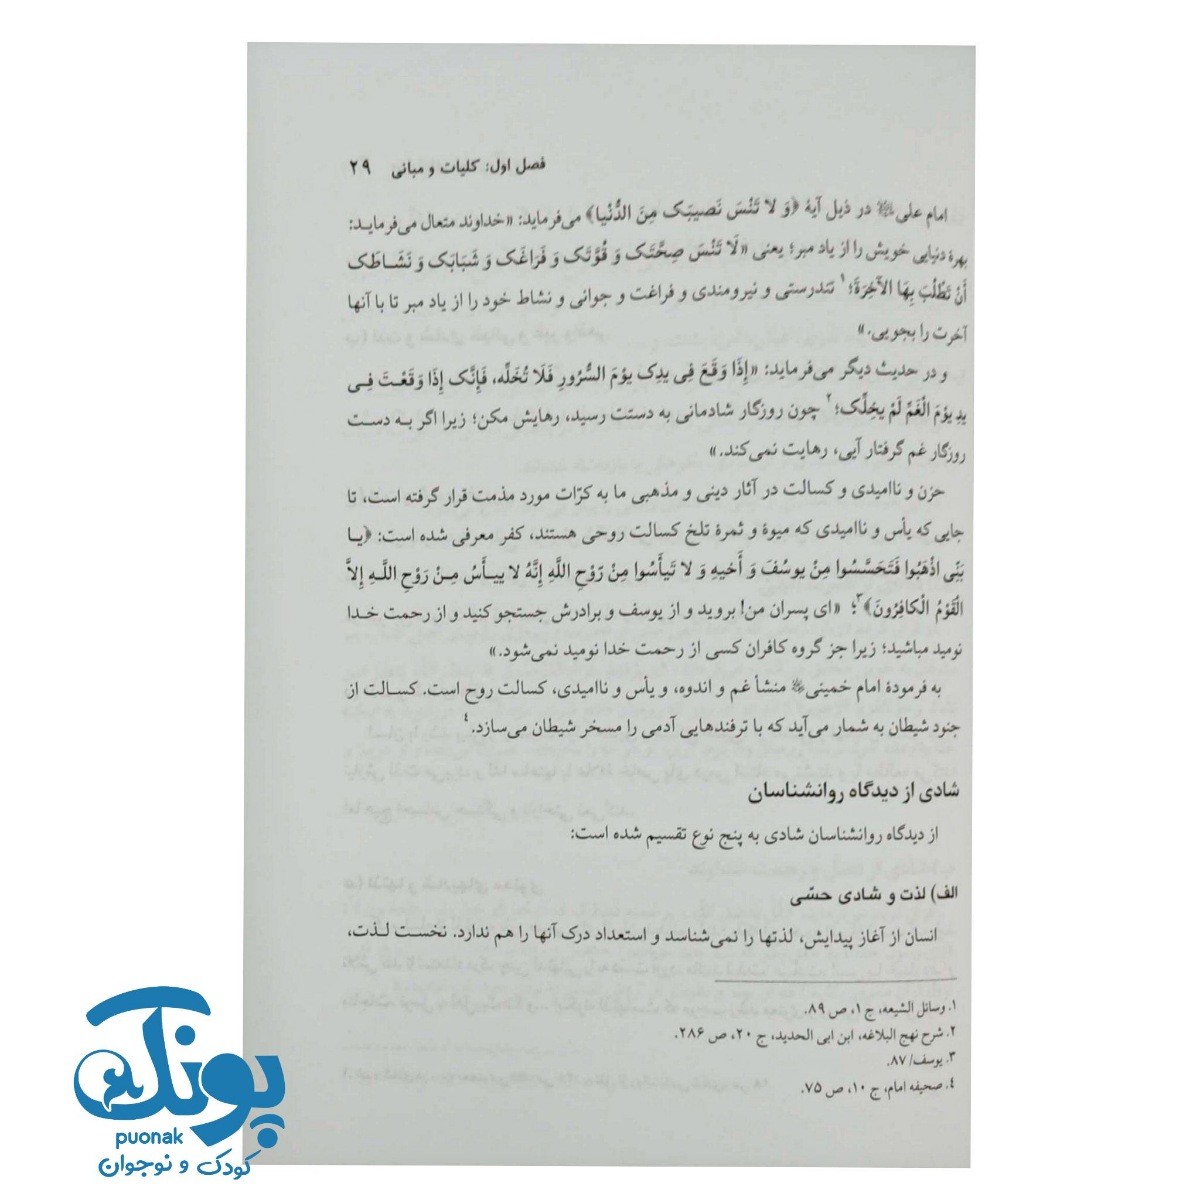 فصل اول: کلیات و مبانی ۲۹
امام علی در ذیل آیهٔ ﴿وَ لاَ تَنْسَ نَصیبَک مِنَ الدُّنْیا﴾ می‌فرماید: «خداوند متعال می‌فرماید:
بهرهٔ دنیایی خویش را از یاد مبر؛ یعنی «لَا تَنْسَ صِحَّتَک وَ قُوَّتَک وَ فَرَاغَک وَ شَبَابَک وَ نَشَاطَک
أَنْ تَطْلُبَ بِهَا الآخِرَةَ؛۱ تندرستی و نیرومندی و فراغت و جوانی و نشاط خود را از یاد مبر تا با آنها
آخرت را بجویی.»
و در حدیث دیگر می‌فرماید: «إِذَا وَقَعَ فِی یدِک یوْمَ السُّرُورِ فَلَا تُخَلِّه، فَإِنَّک إِذَا وَقَعْتَ فِی
یدِ یوْمَ الْغَمِّ لَمْ یخِلَّک؛۲ چون روزگار شادمانی به دستت رسید، رهایش مکن؛ زیرا اگر به دست
روزگار غم گرفتار آیی، رهایت نمی‌کند.»
حزن و ناامیدی و کسالت در آثار دینی و مذهبی ما به کرّات مورد مذمت قرار گرفته است، تا
جایی که یأس و ناامیدی که میوه و ثمرهٔ تلخ کسالت روحی هستند، کفر معرفی شده است: ﴿یا
بَنِّی اذْهَبُوا فَتَحَسَّسُوا مِنْ یوسُفَ وَ أَخیهِ وَ لا تَیأَسُوا مِنْ رَوْحِ اللَّهِ إِنَّهُ لا ییأَسُ مِنْ رَوْحِ اللَّهِ إِلاَّ
الْقَوْمُ الْکافِرُونَ﴾۳؛ «ای پسران من! بروید و از یوسف و برادرش جستجو کنید و از رحمت خدا
نومید مباشید؛ زیرا جز گروه کافران کسی از رحمت خدا نومید نمی‌شود.»
به فرمودهٔ امام خمینی منشأ غم و اندوه، و یأس و ناامیدی، کسالت روح است. کسالت از
جنود شیطان به شمار می‌آید که با ترفندهایی آدمی را مسخر شیطان می‌سازد.۴
شادی از دیدگاه روانشناسان
از دیدگاه روانشناسان شادی به پنج نوع تقسیم شده است:
الف) لذت و شادی حسّی
انسان از آغاز پیدایش، لذتها را نمی‌شناسد و استعداد درک آنها را هم ندارد. نخست لذت،
۱. وسائل الشیعه، ج ۱، ص ۸۹.
۲. شرح نهج البلاغه، ابن ابی الحدید، ج ۲۰، ص ۲۸۶.
۳. یوسف/ ۸۷.
۴. صحیفه امام، ج ۱۰، ص ۷۵.
پونک
puonak
کودک و نوجوان